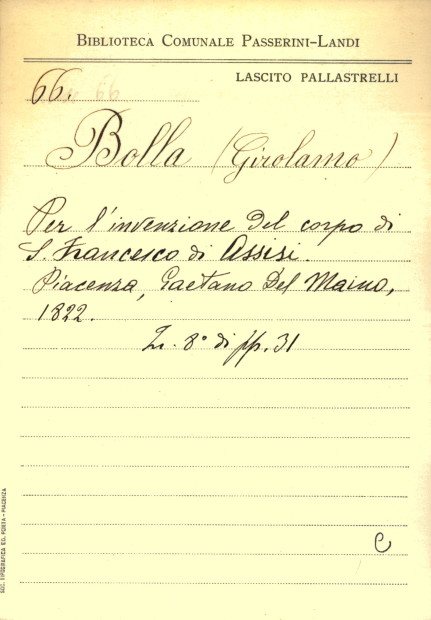 BIBLIOTECA COMUNALE PASSERINI-LANDI
LASCITO PALLASTRELLI
66. 66
Bolla (Girolamo)
Per l'invenzione del corpo di
S. Francesco di Assisi.
Piacenza, Gaetano Del Maino,
1822.
In 8° di pp. 31
C
SOC. TIPOGRAFICA ED. PORTA - PIACENZA